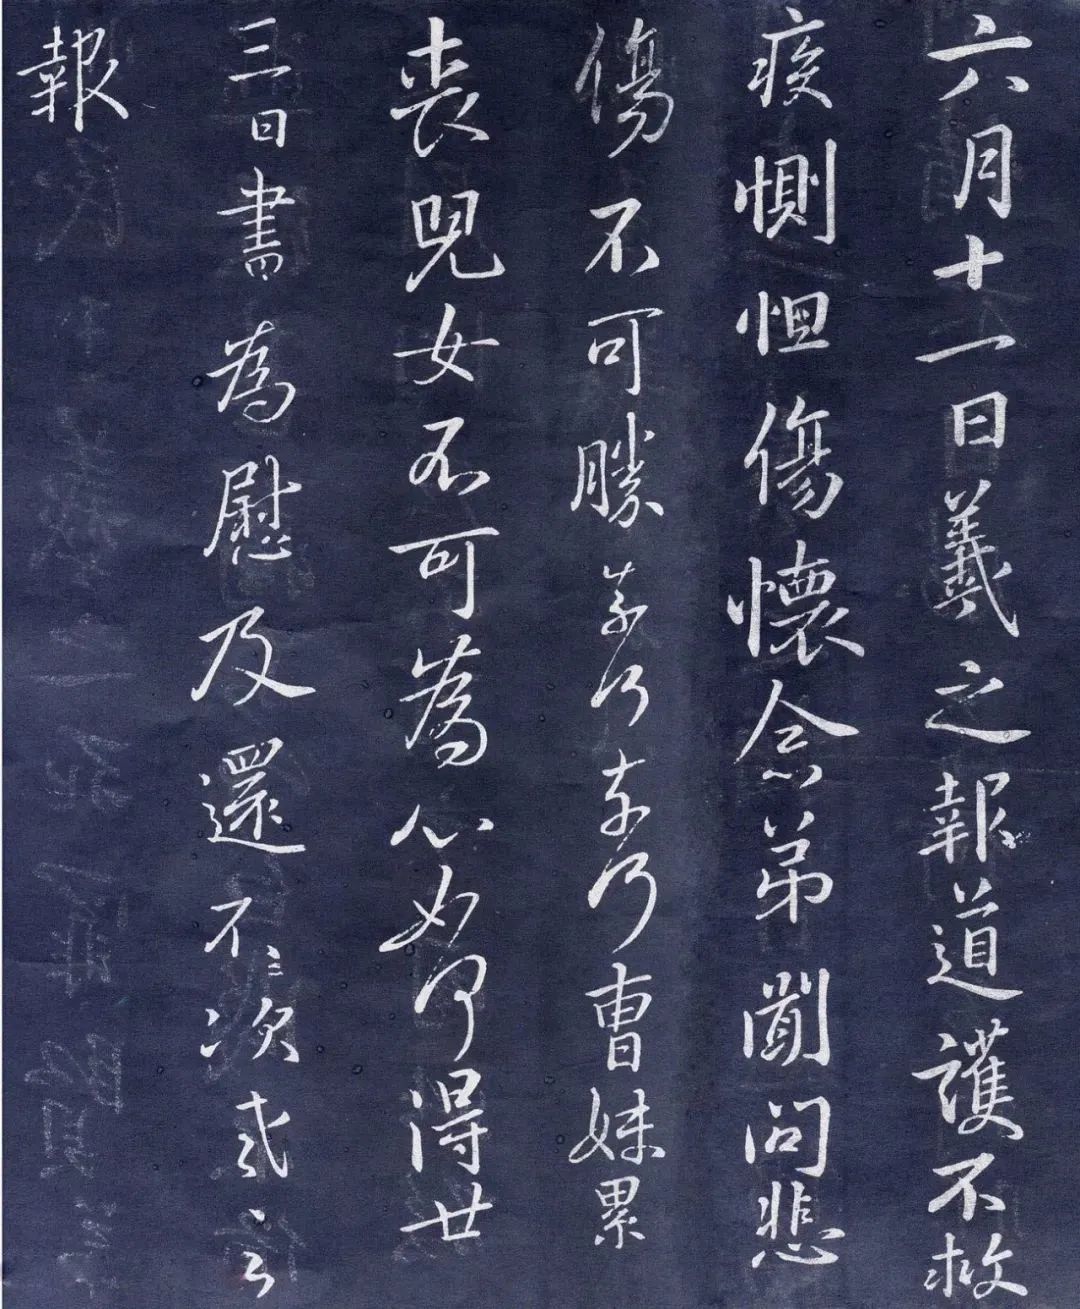 六月十一日羲之報道護不救
疾惻怛傷懷念弟聞問悲
傷不可勝奈何奈何曹妹累
喪兒女不可為心如何得廿
三日書為慰及還不次羲之
報